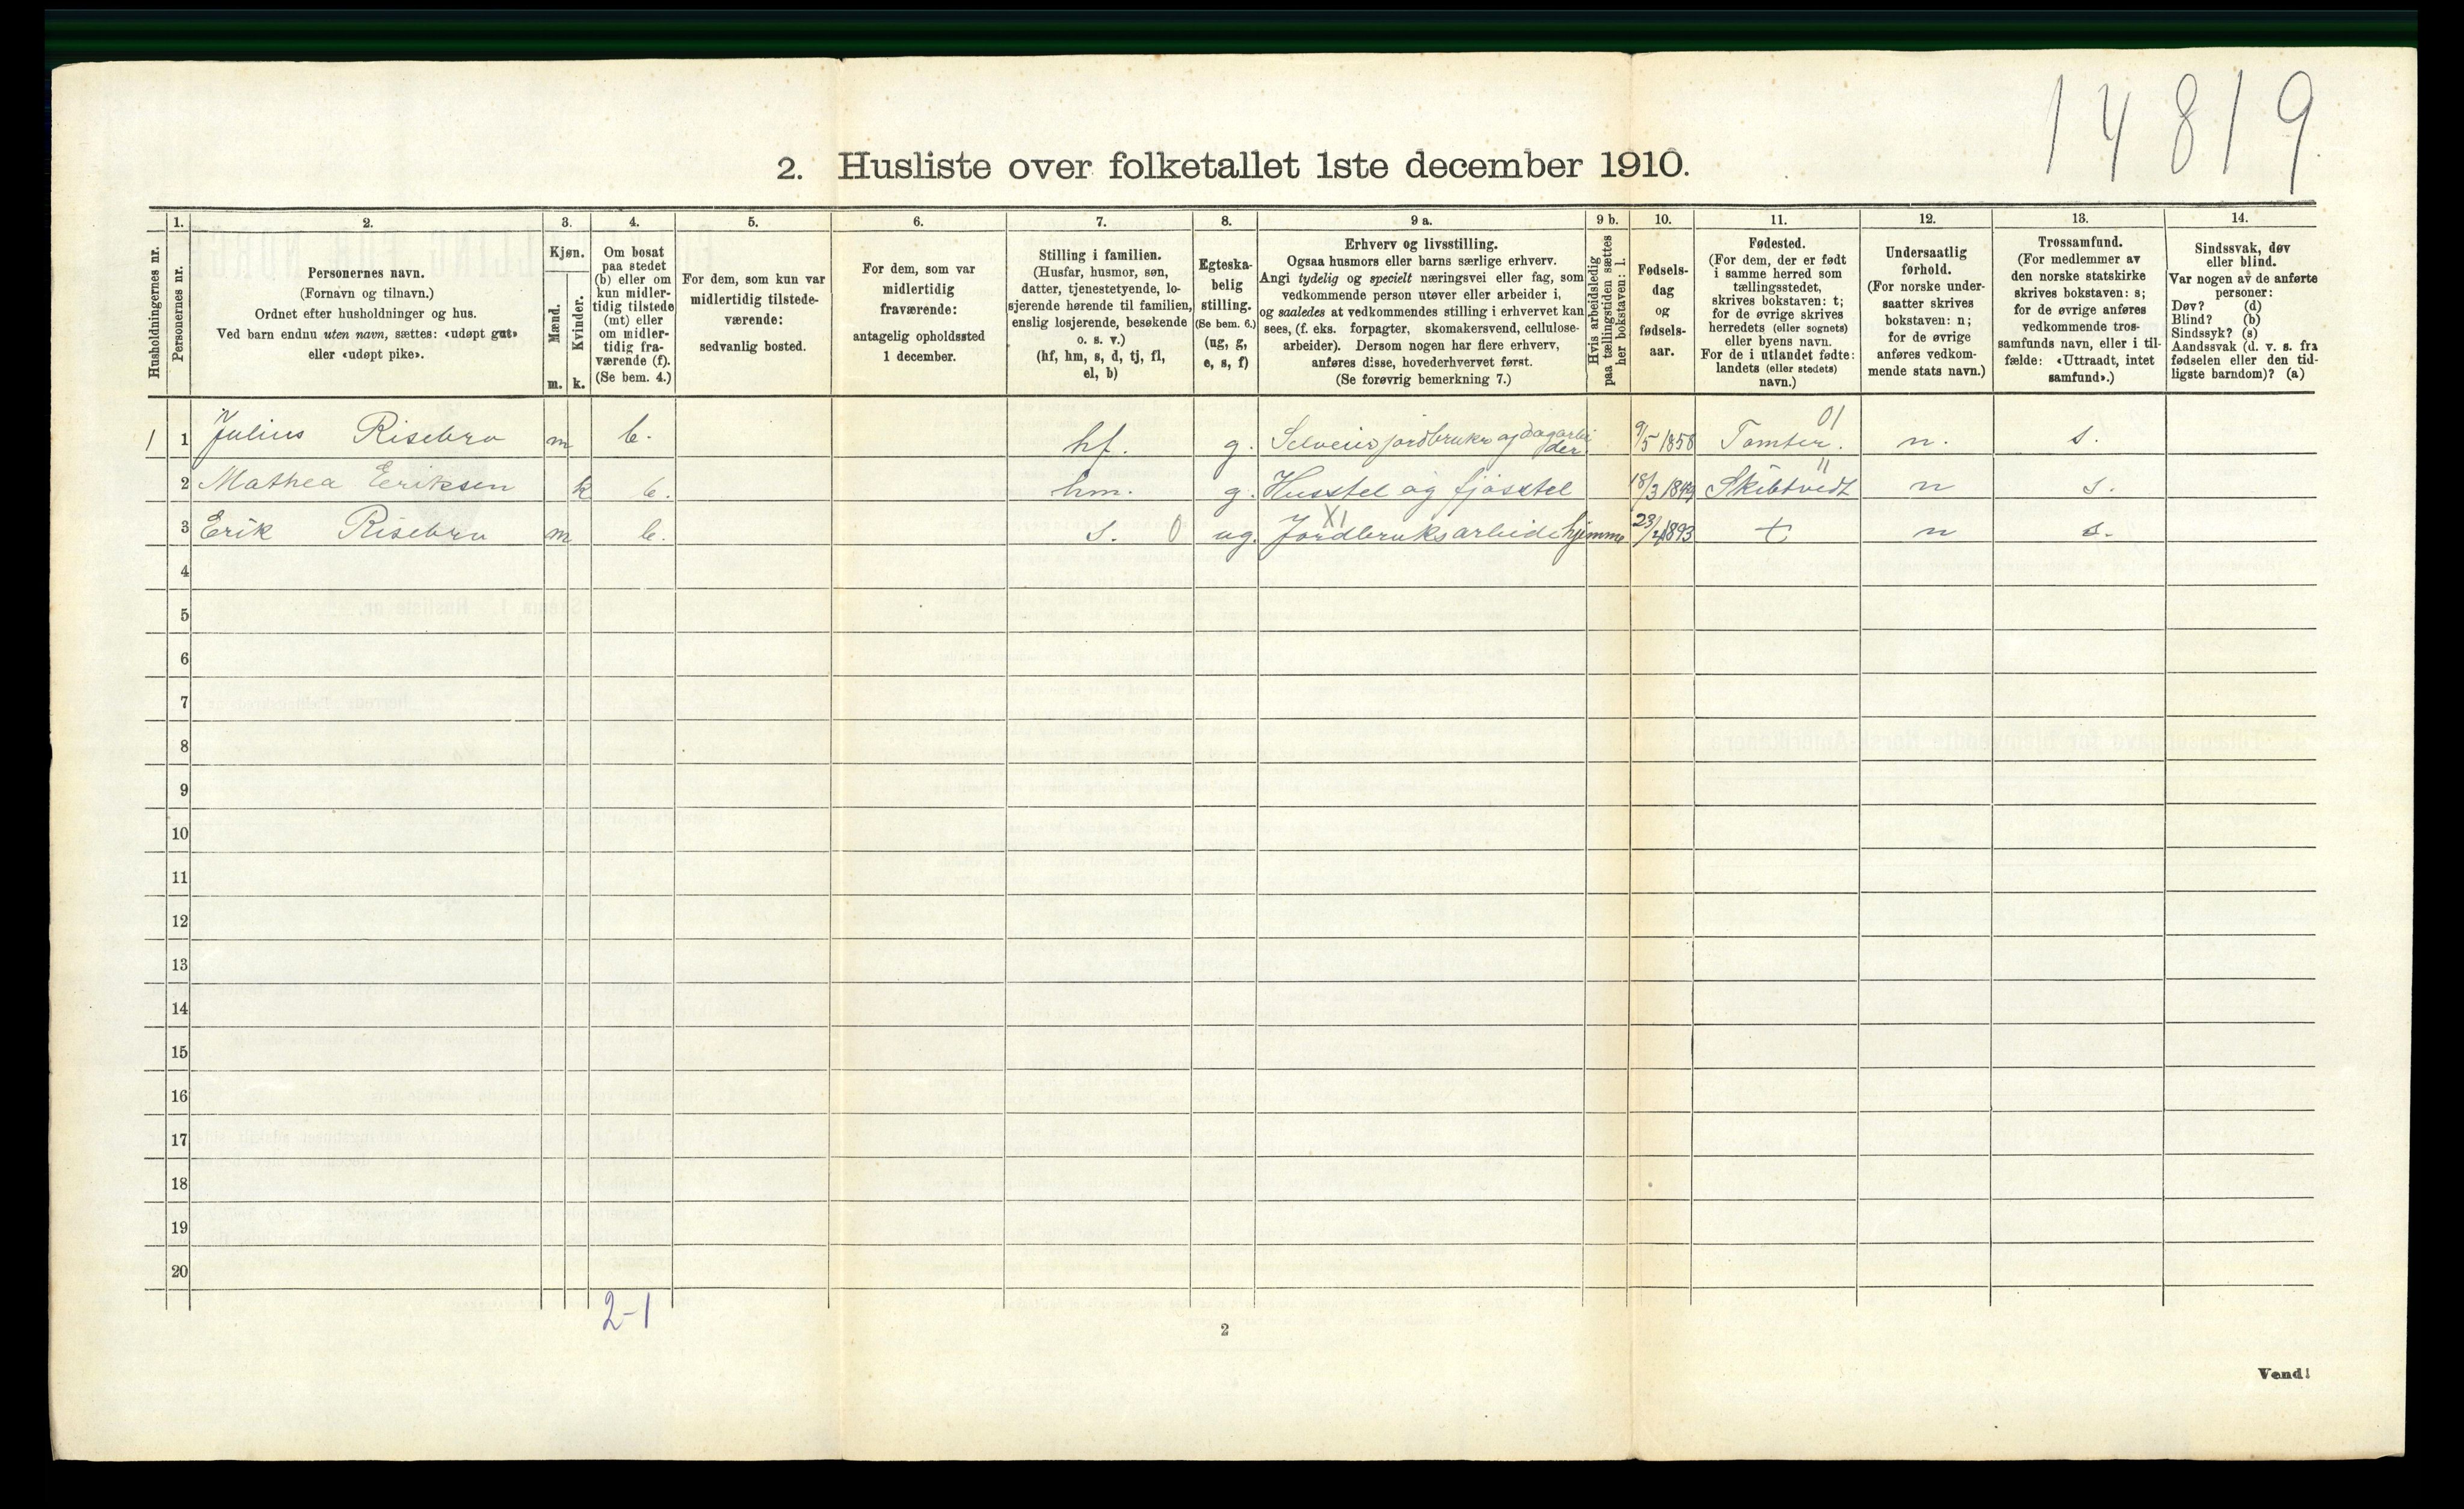 14819
2. Husliste over folketallet 1ste december 1910.
Husholdningernes nr.
1.
Personernes nr.
2.
Personernes navn.
(Fornavn og tilnavn.)
Ordnet efter husholdninger og hus.
Ved barn endnu uten navn, sættes: «udøpt gut»
eller «udøpt pike».
3.
Kjøn.
Mænd.
Kvinder.
m. k.
4.
Om bosat
paa stedet
(b) eller om
kun midler-
tidig tilstede
(mt) eller
om midler-
tidig fra-
værende (f).
(Se bem. 4.)
5.
For dem, som kun var
midlertidig tilstede-
værende:
sedvanlig bosted.
6.
For dem, som var
midlertidig
fraværende:
antagelig opholdssted
1 december.
7.
Stilling i familien.
(Husfar, husmor, søn,
datter, tjenestetyende, lo-
sjerende hørende til familien,
enslig losjerende, besøkende
o. s. v.)
(hf, hm, s, d, tj, fl,
el, b)
8.
Egteska-
belig
stilling.
(Se bem. 6.)
(ug, g,
e, s, f)
9 a.
Erhverv og livsstilling.
Ogsaa husmors eller barns særlige erhverv.
Angi tydelig og specielt næringsvei eller fag, som
vedkommende person utøver eller arbeider i,
og saaledes at vedkommendes stilling i erhvervet kan
sees, (f. eks. forpagter, skomakersvend, cellulose-
arbeider). Dersom nogen har flere erhverv,
anføres disse, hovederhvervet først.
(Se forøvrig bemerkning 7.)
9 b.
Hvis arbeidsledig
paa tællingstiden sættes
her bokstaven: l.
10.
Fødsels-
dag
og
fødsels-
aar.
11.
Fødested.
(For dem, der er født
i samme herred som
tællingsstedet,
skrives bokstaven: t;
for de øvrige skrives
herredets (eller sognets)
eller byens navn.
For de i utlandet fødte:
landets (eller stedets)
navn.)
12.
Undersaatlig
forhold.
(For norske under-
saatter skrives
bokstaven: n;
for de øvrige
anføres vedkom-
mende stats navn.)
13.
Trossamfund.
(For medlemmer av
den norske statskirke
skrives bokstaven: s;
for de øvrige anføres
vedkommende tros-
samfunds navn, eller i til-
fælde: «Uttraadt, intet
samfund».)
14.
Sindssvak, døv
eller blind.
Var nogen av de anførte
personer:
Døv? (d)
Blind? (b)
Sindssyk? (s)
Aandssvak (d. v. s. fra
fødselen eller den tid-
ligste barndom)? (a)
1 1 Julius Risebro m b. hf. g. Selveier jordbruker og dagarbei der 9/5 1858 Tomter. 01 n. s.
2 Mathea Eriksen k b. hm. g. Husstel og fjøsstel 18/3 1849 Skibtvedt 11 n s.
3 Erik Risebro m b. s. 0 ug. Jordbruksarbeide hjemme XI 23/4 1893 t n s.
4
5
6
7
8
9
10
11
12
13
14
15
16
17
18
19
20
2-1
2
Vend!